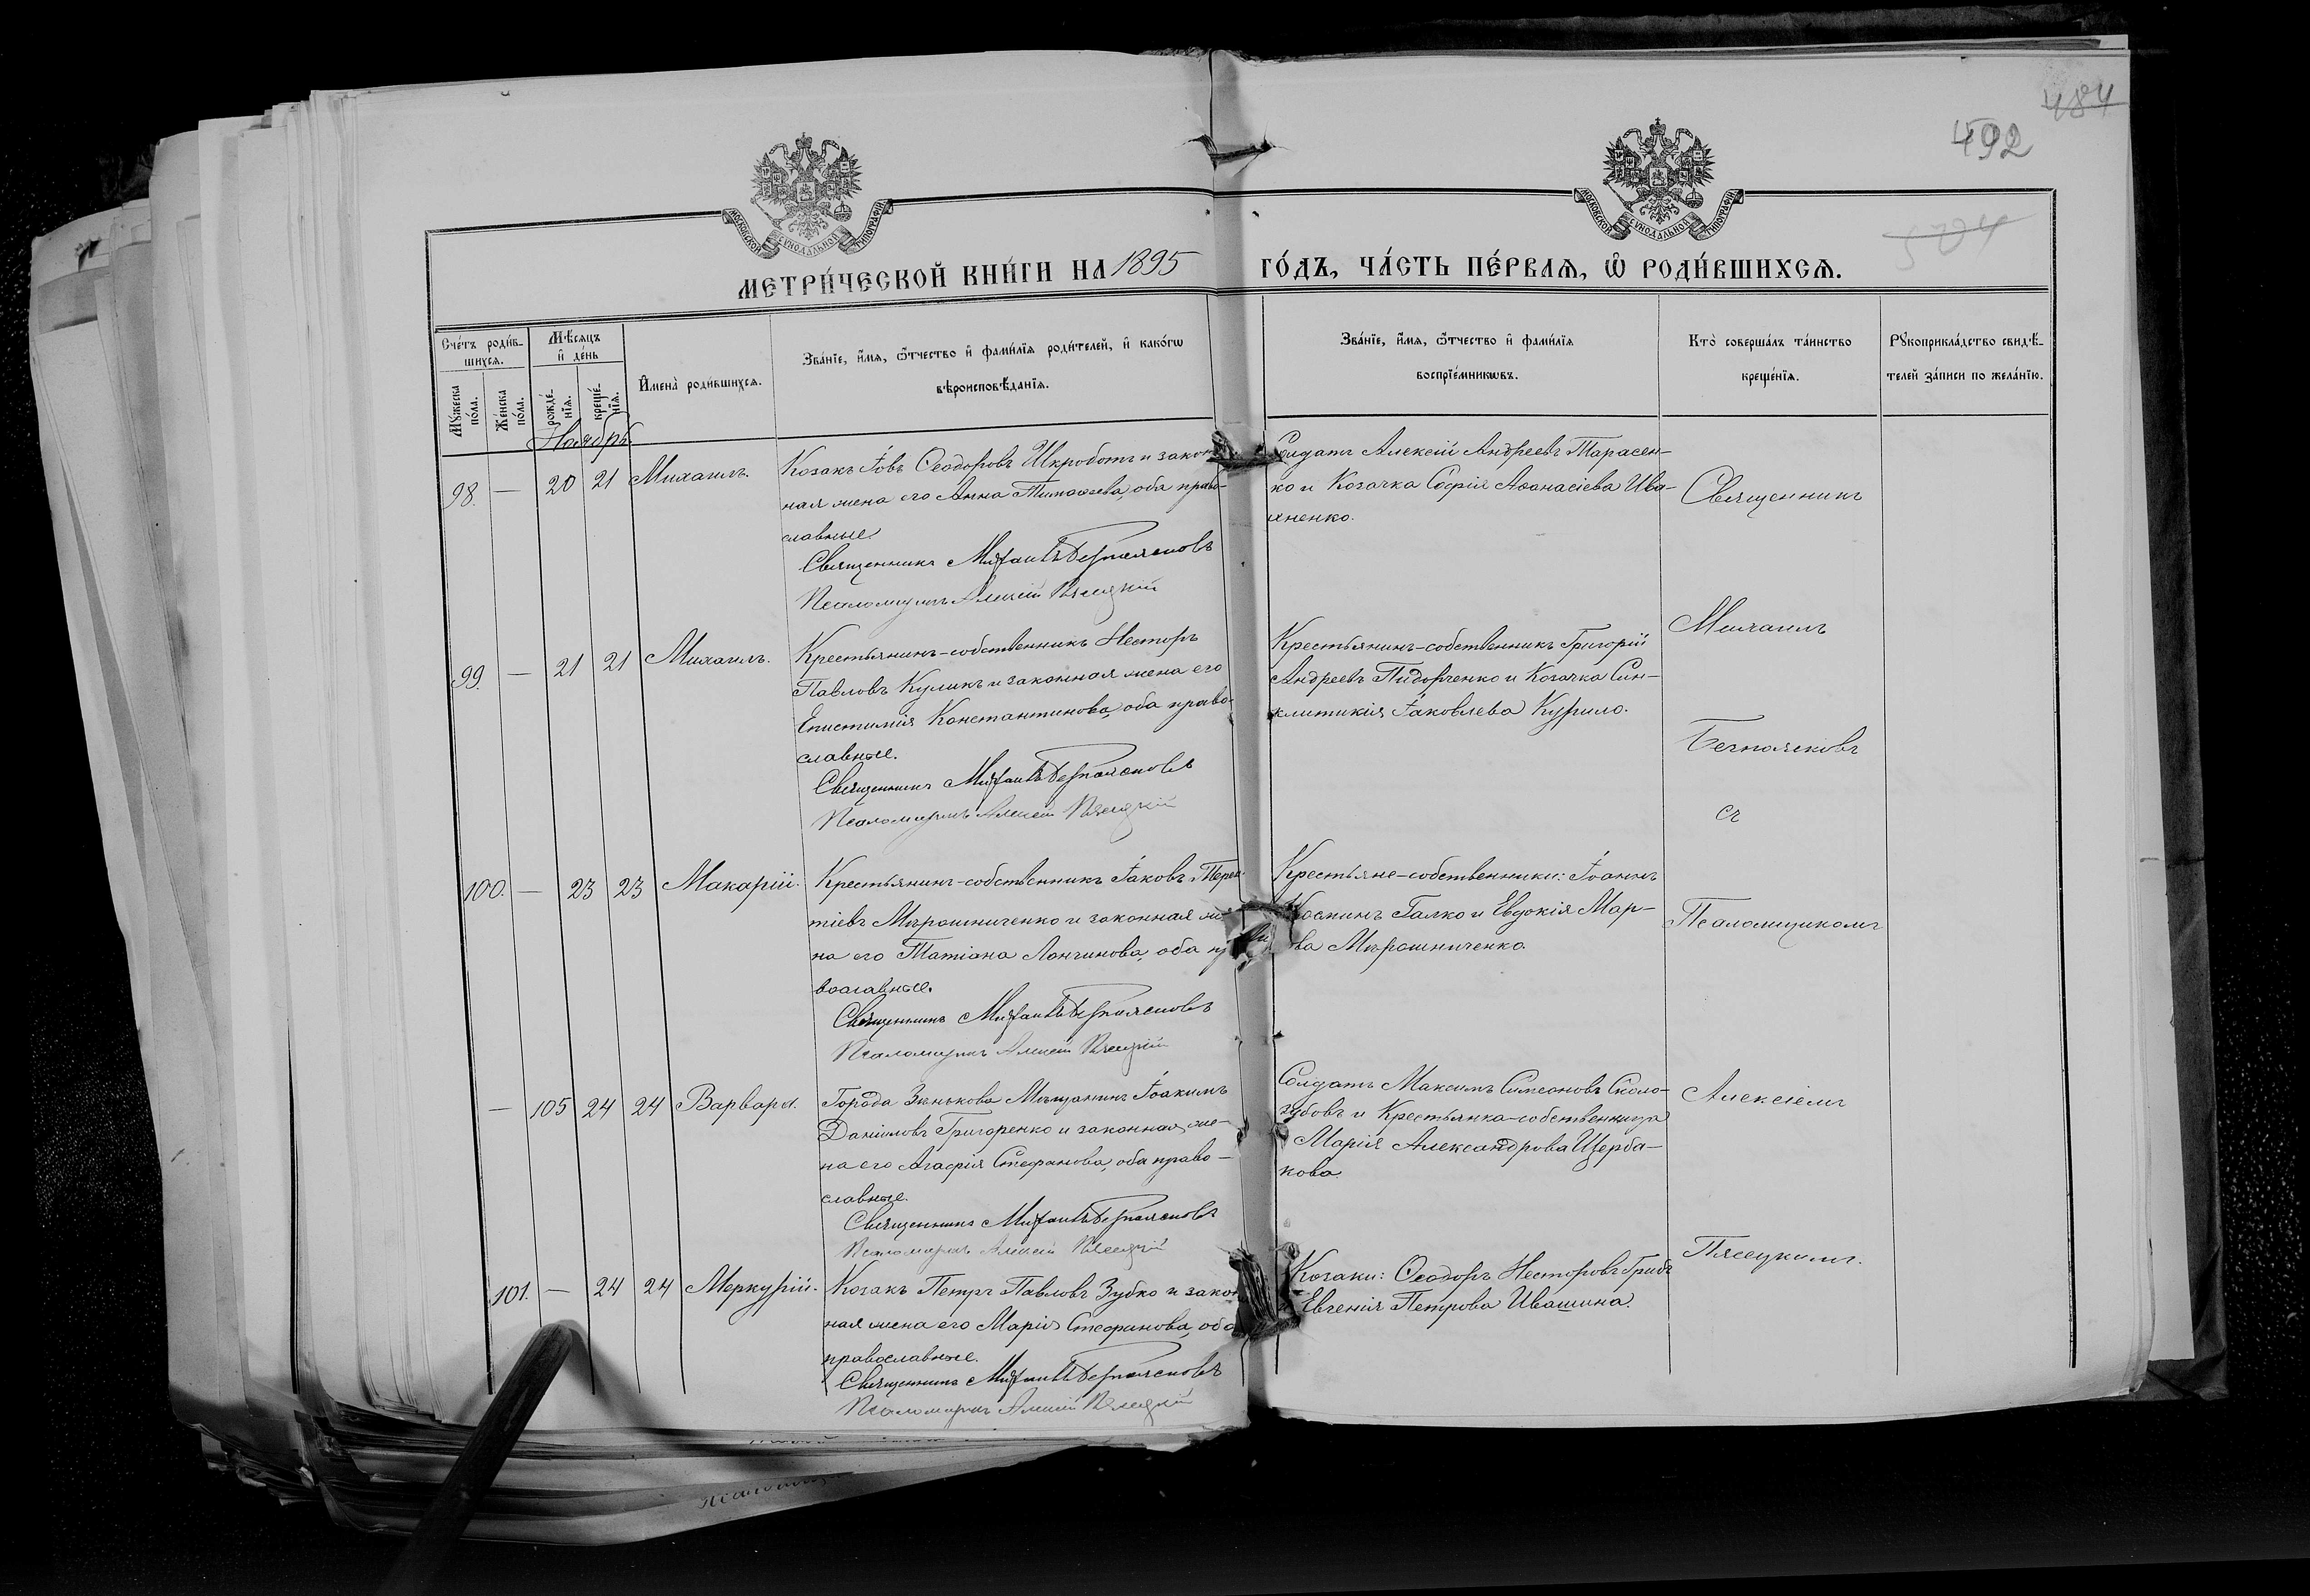 484
492
504
МОСКОВСКОЙ СѴНОДАЛЬНОЙ ТИПОГРАФІИ
МОСКОВСКОЙ СѴНОДАЛЬНОЙ ТИПОГРАФІИ
МЕТРИ́ЧЕСКОЙ КНИ́ГИ НА 1895 ГО́ДЪ, ЧА́СТЬ ПЕ́РВАѦ, Ѡ҆ РОДИ́ВШИХСѦ.
Сче́тъ роди́в-
шихсѧ.
Мѣ́сѧцъ
и҆ де́нь
Мꙋ́жеска
по́ла.
Же́нска
по́ла.
рожде́-
нїѧ.
креще́-
нїѧ.
И҆мена̀ роди́вшихсѧ.
Зва́нїе, и҆́мѧ, ѻ҆́тчество и҆ фами́лїѧ роди́телей, и҆ како́гѡ
вѣроисповѣ́данїѧ.
Зва́нїе, и҆́мѧ, ѻ҆́тчество и҆ фами́лїѧ
воспрїе́мникѡвъ.
Кто̀ соверша́лъ та́инство
креще́нїѧ.
Рꙋкоприкла́дство свидѣ́-
телей за́писи по жела́нїю.
Ноябрь
98. — 20 21 Михаилъ.
Козакъ Іовъ Ѳеодоровъ Шкроботъ и закон-
ная жена его Анна Тимоѳеева, оба право-
славные.
Священникъ Михаилъ Безпалековъ
Псаломщикъ Алексій Пясецкій
Солдатъ Алексій Андреевъ Тарасен-
ко и Козачка Софія Аѳанасіева Ива-
хненко.
Священникъ
99. — 21 21 Михаилъ.
Крестьянинъ-собственникъ Несторъ
Павловъ Куликъ и законная жена его
Епистимія Константинова, оба право-
славные.
Священникъ Михаилъ
Псаломщикъ Алексій Пясецкій
Крестьянинъ-собственникъ Григорій
Андреевъ Пидорченко и Козачка Син-
клитикія Іаковлева Курило.
Михаилъ
съ
100. — 23 23 Макарій.
Крестьянинъ-собственникъ Іаковъ Терен-
тіевъ Мирошниченко и законная же-
на его Татіана Лонгинова, оба пра-
вославные.
Священникъ Михаилъ
Псаломщикъ Алексій Пясецкій
Крестьяне-собственники: Іоаннъ
Галко и Евдокія Мар-
ва Мирошниченко.
Псаломщикомъ
— 105 24 24 Варвара.
Города Зинькова Мѣщанинъ Іоакимъ
Даніиловъ Григоренко и законная же-
на его Агафія Стефанова, оба право-
славные.
Священникъ Михаилъ
Псаломщикъ Алексій Пясецкій
Солдатъ Максимъ Симеоновъ Сколо-
зубовъ и Крестьянка-собственница
Марія Александрова Щерба-
кова.
Алексіемъ
101. — 24 24 Меркурій.
Козакъ Петръ Павловъ Зубко и закон-
ная жена его Марія Стефанова, оба
православные.
Священникъ Михаилъ
Псаломщикъ Алексій Пясецкій
Козаки: Ѳеодоръ Несторовъ Грибъ
и Евгенія Петрова Ивашина.
Пясецкимъ.